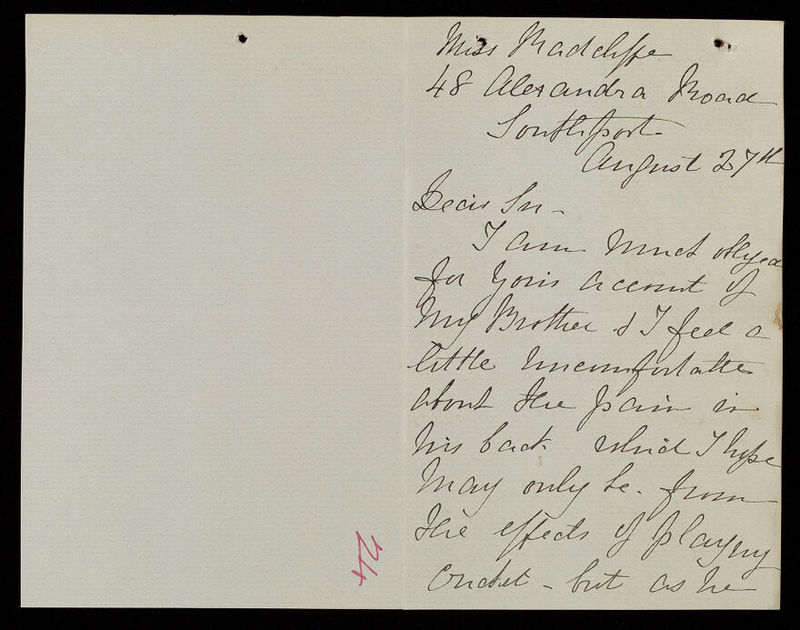 Miss Radcliffe
48 Alexandra Road
Southport
August 27th
Dear Sir -
I am much obliged
for your account of
My Brother & I feel a
little uncomfortable
about the pain in
his back which I hope
May only be from
the effects of playing
Cricket - but as he
24